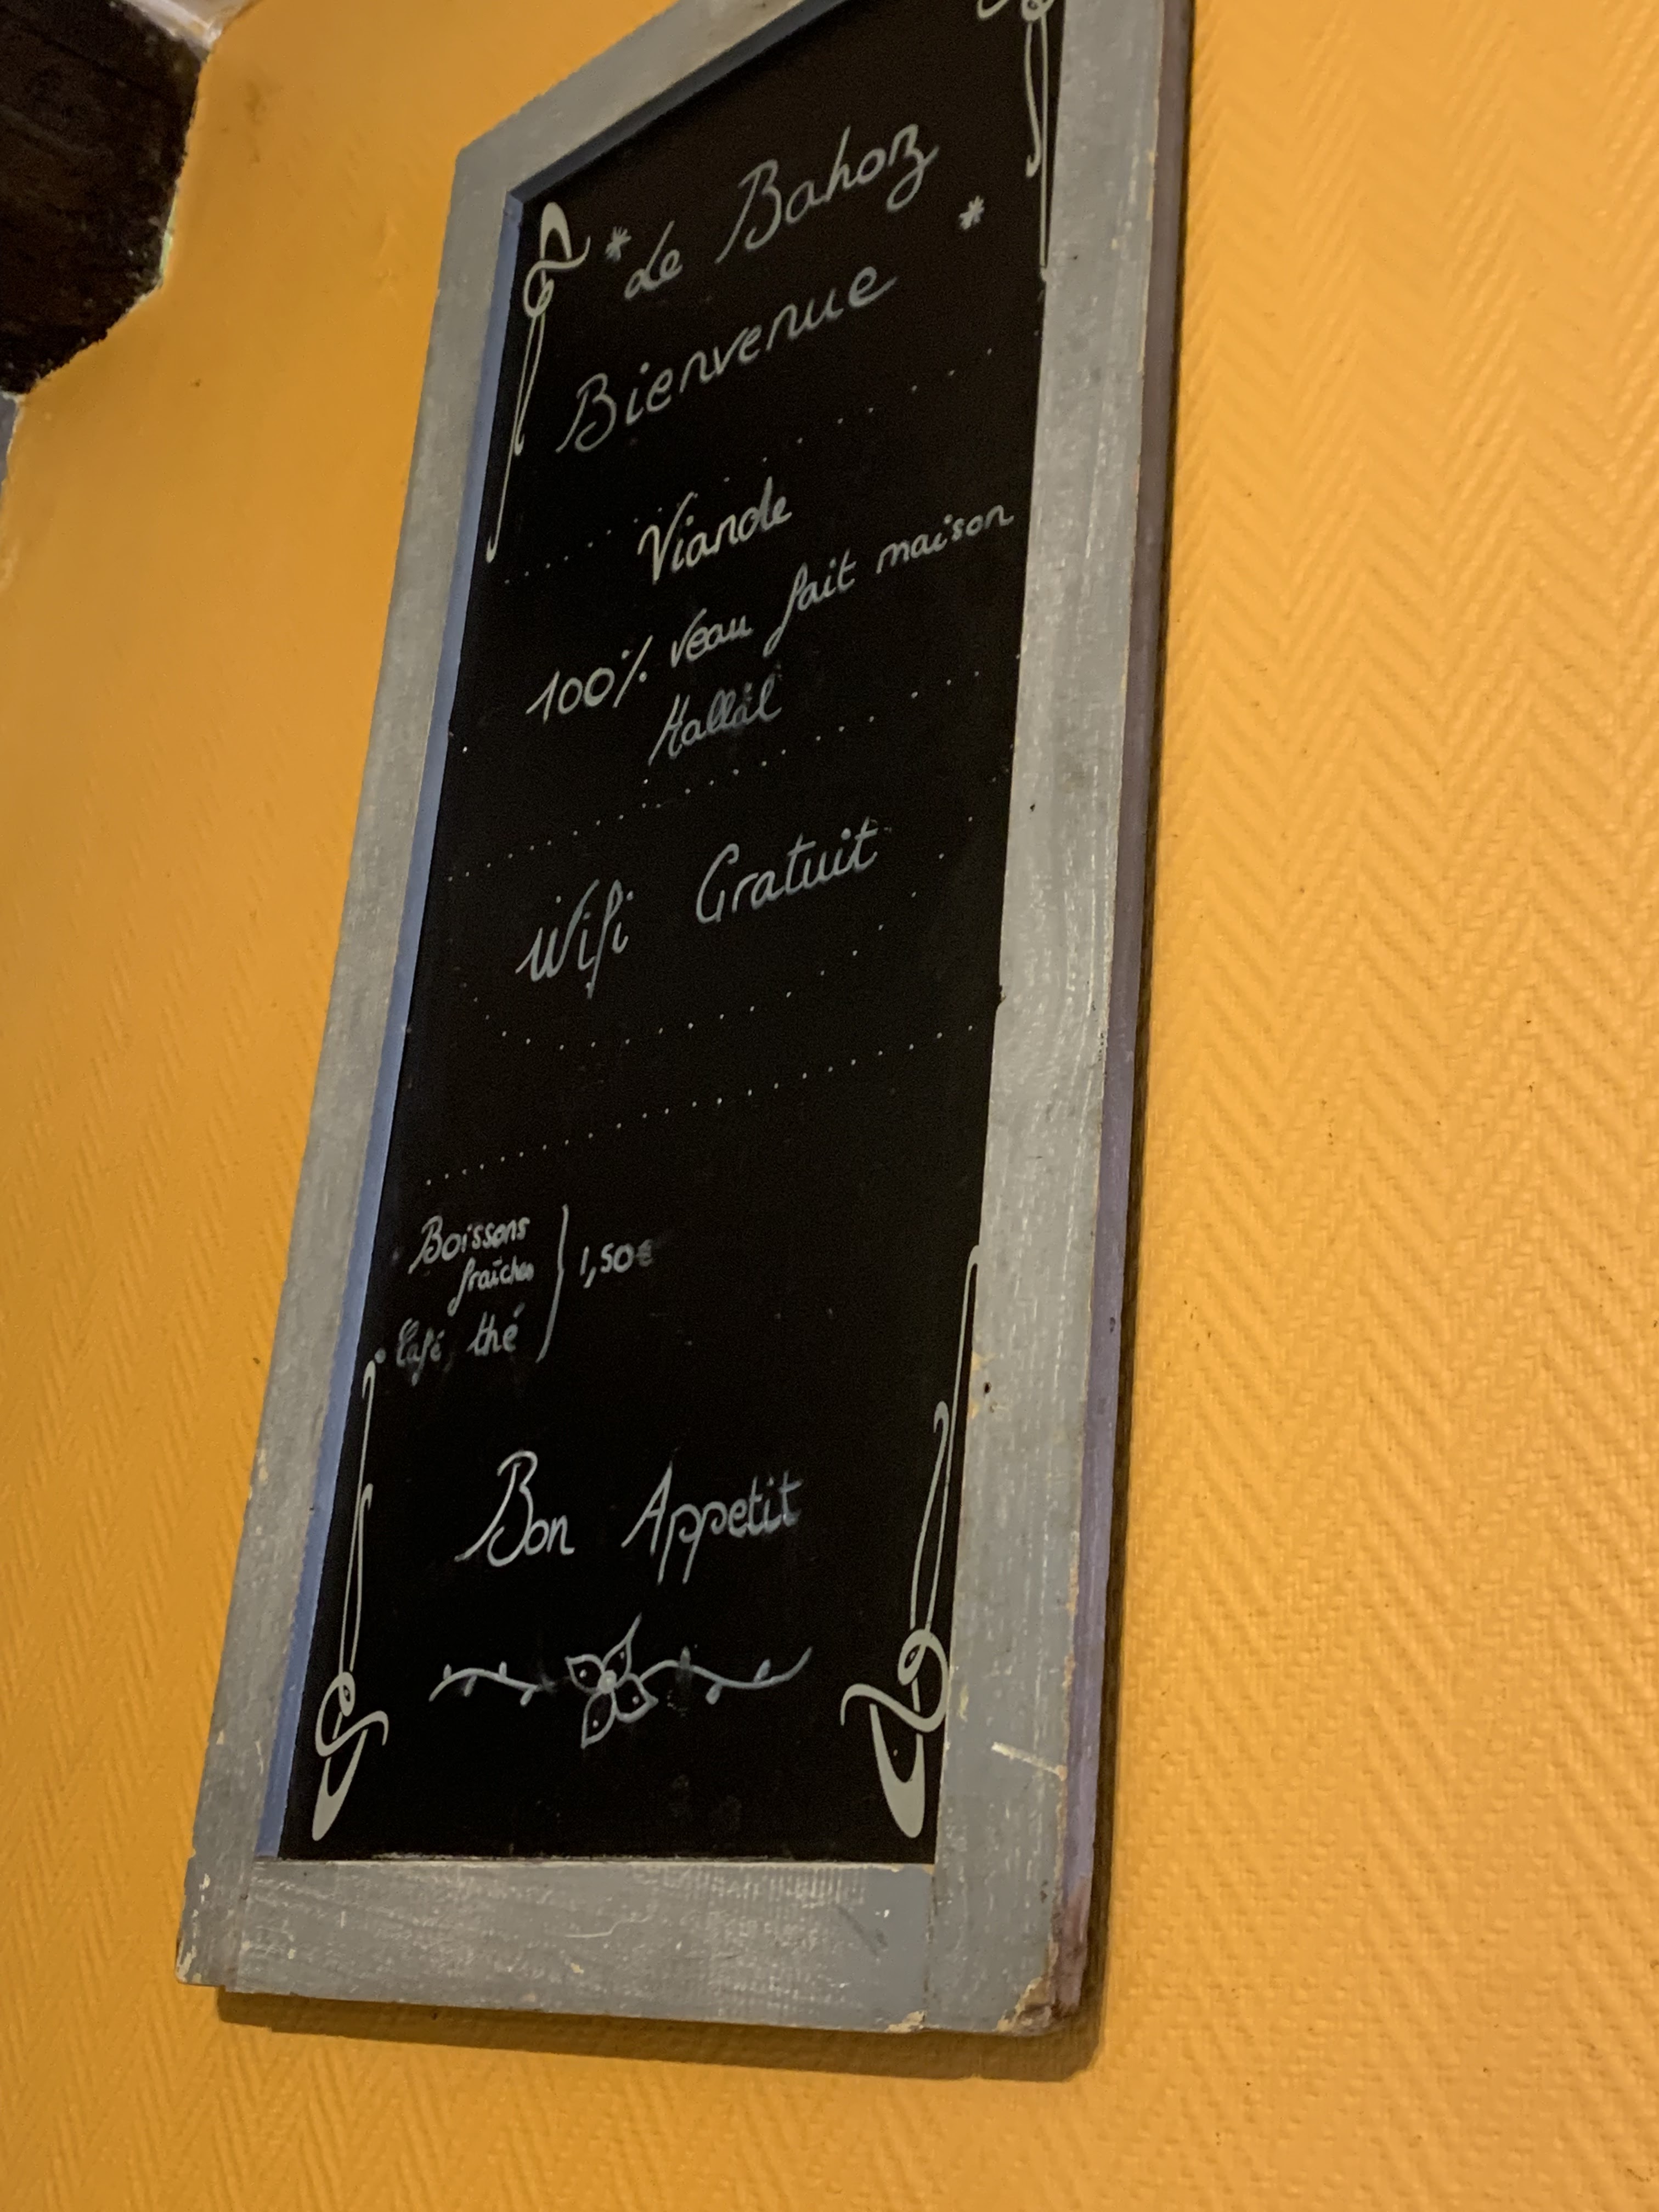 * Le Bahoz *
Bienvenue
Viande
100% veau fait maison
Hallal
Wifi Gratuit
Boissons
fraîches
Café, thé
1,50€
Bon Appetit